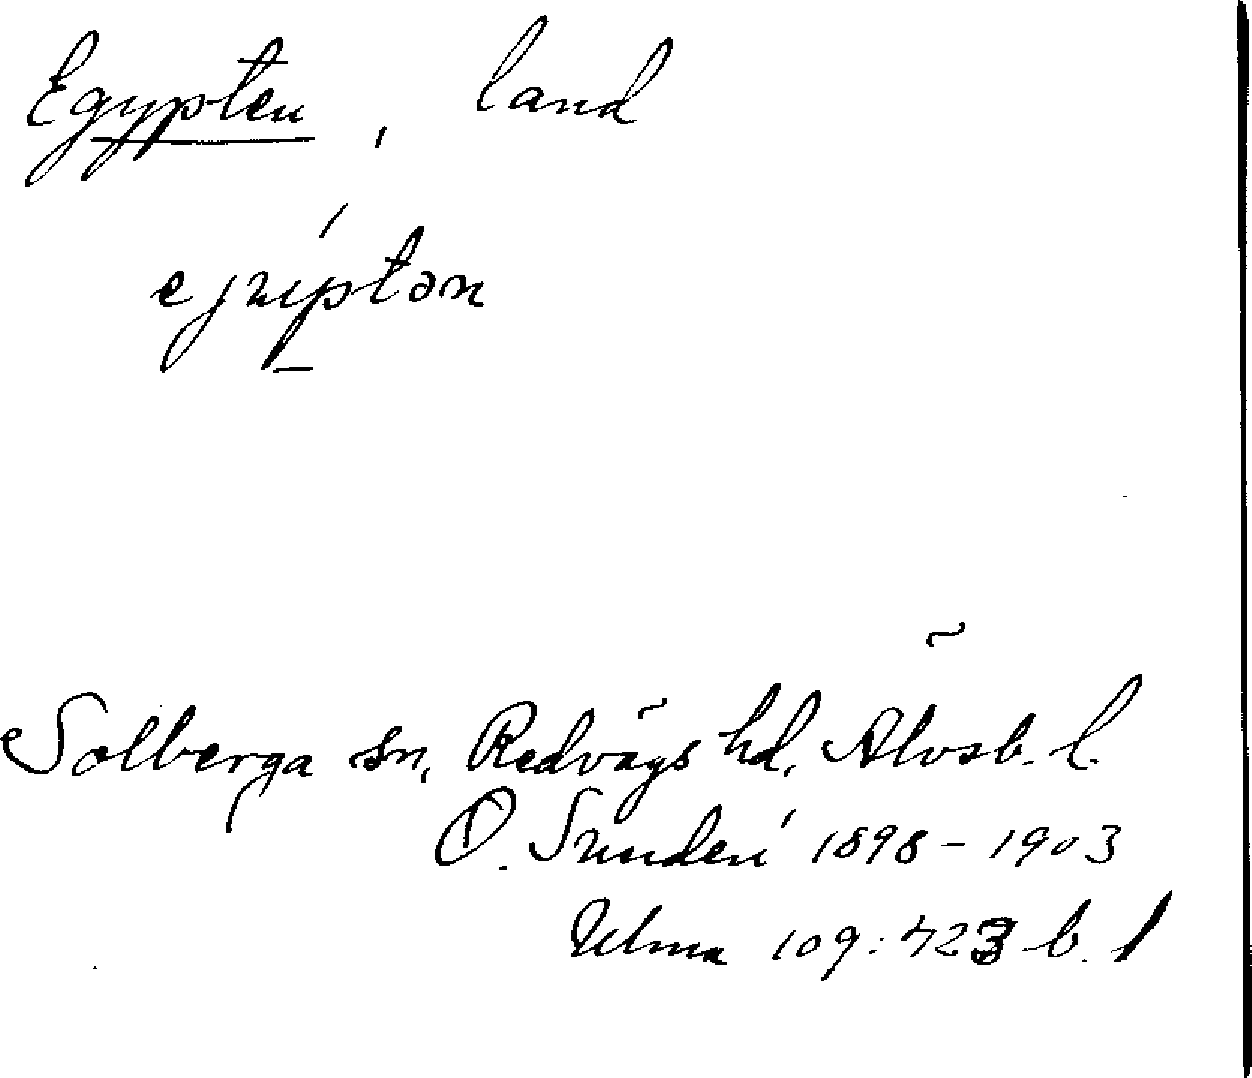 Egypten, land
ejiptən
Solberga sn, Redvägs hd, Älvsb. l.
O. Sundén 1898-1903
Ulma 109:423 b. 1